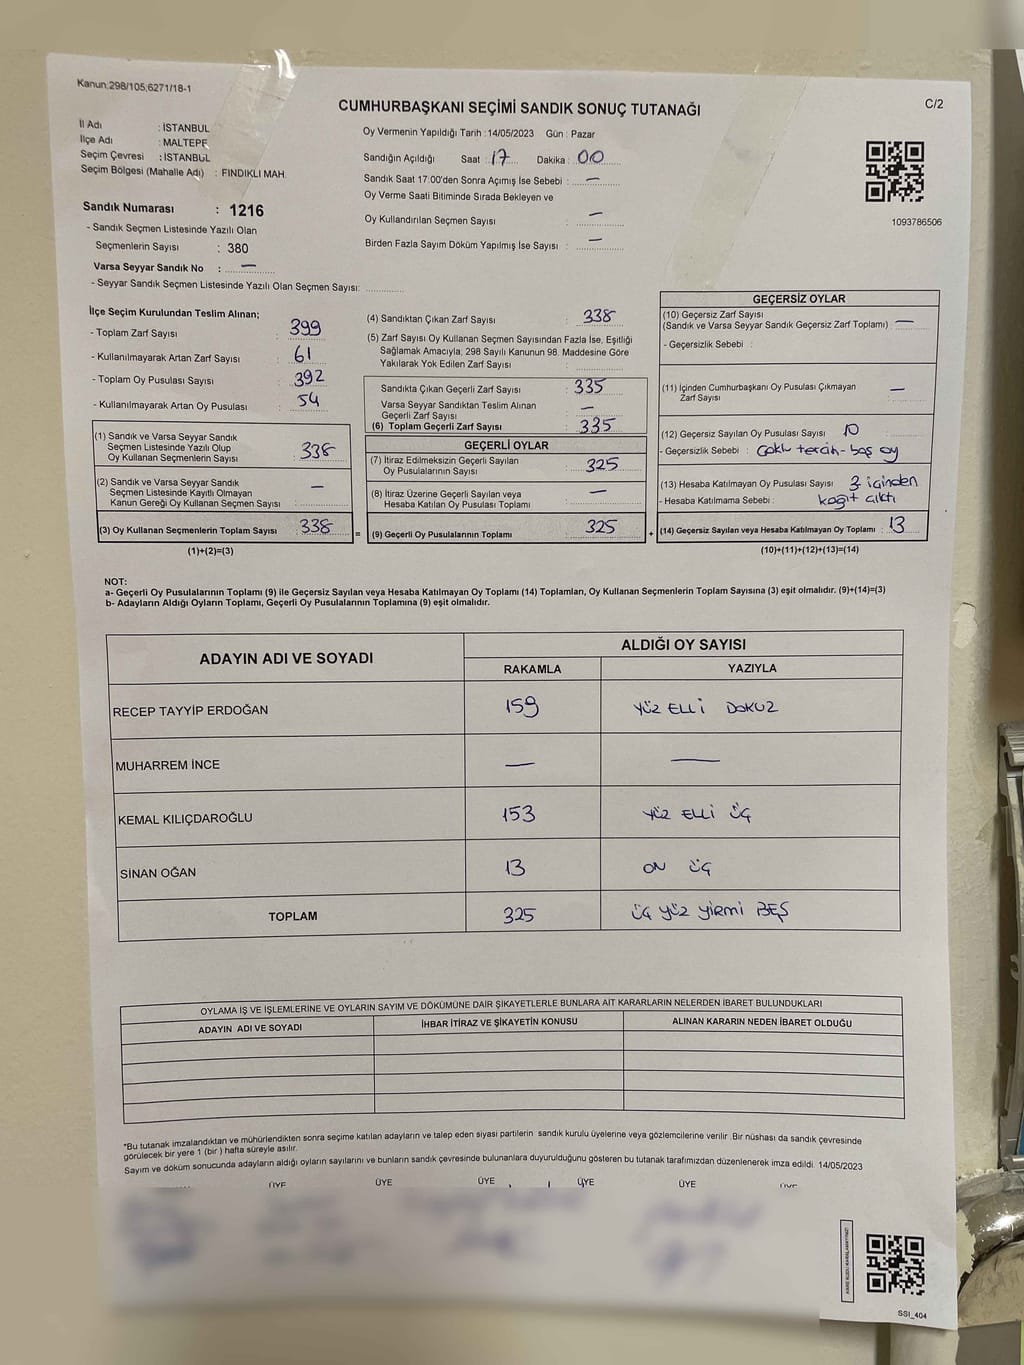 Kanun;298/105;6271/18-1
C/2
CUMHURBAŞKANI SEÇİMİ SANDIK SONUÇ TUTANAĞI
İl Adı : İSTANBUL
İlçe Adı : MALTEPE
Seçim Çevresi : İSTANBUL
Seçim Bölgesi (Mahalle Adı) : FINDIKLI MAH.
Sandık Numarası : 1216
- Sandık Seçmen Listesinde Yazılı Olan
Seçmenlerin Sayısı : 380
Varsa Seyyar Sandık No : —
- Seyyar Sandık Seçmen Listesinde Yazılı Olan Seçmen Sayısı:
Oy Vermenin Yapıldığı Tarih :14/05/2023 Gün : Pazar
Sandığın Açıldığı Saat : 17 Dakika : 00
Sandık Saat 17:00'den Sonra Açımış İse Sebebi : —
Oy Verme Saati Bitiminde Sırada Bekleyen ve
Oy Kullandırılan Seçmen Sayısı : —
Birden Fazla Sayım Döküm Yapılmış İse Sayısı : —
1093786506
İlçe Seçim Kurulundan Teslim Alınan;
- Toplam Zarf Sayısı : 399
- Kullanılmayarak Artan Zarf Sayısı : 61
- Toplam Oy Pusulası Sayısı : 392
- Kullanılmayarak Artan Oy Pusulası : 54
(1) Sandık ve Varsa Seyyar Sandık
Seçmen Listesinde Yazılı Olup
Oy Kullanan Seçmenlerin Sayısı : 338
(2) Sandık ve Varsa Seyyar Sandık
Seçmen Listesinde Kayıtlı Olmayan
Kanun Gereği Oy Kullanan Seçmen Sayısı : —
(3) Oy Kullanan Seçmenlerin Toplam Sayısı : 338
(1)+(2)=(3)
=
(4) Sandıktan Çıkan Zarf Sayısı : 338
(5) Zarf Sayısı Oy Kullanan Seçmen Sayısından Fazla İse, Eşitliği
Sağlamak Amacıyla, 298 Sayılı Kanunun 98. Maddesine Göre
Yakılarak Yok Edilen Zarf Sayısı :
Sandıkta Çıkan Geçerli Zarf Sayısı : 335
Varsa Seyyar Sandıktan Teslim Alınan
Geçerli Zarf Sayısı : —
(6) Toplam Geçerli Zarf Sayısı : 335
GEÇERLİ OYLAR
(7) İtiraz Edilmeksizin Geçerli Sayılan
Oy Pusulalarının Sayısı : 325
(8) İtiraz Üzerine Geçerli Sayılan veya
Hesaba Katılan Oy Pusulası Toplamı : —
(9) Geçerli Oy Pusulalarının Toplamı : 325
+
GEÇERSİZ OYLAR
(10) Geçersiz Zarf Sayısı
(Sandık ve Varsa Seyyar Sandık Geçersiz Zarf Toplamı) : —
- Geçersizlik Sebebi :
(11) İçinden Cumhurbaşkanı Oy Pusulası Çıkmayan
Zarf Sayısı : —
(12) Geçersiz Sayılan Oy Pusulası Sayısı : 10
- Geçersizlik Sebebi : Çoklu tercih - boş oy
(13) Hesaba Katılmayan Oy Pusulası Sayısı : 3 içinden
- Hesaba Katılmama Sebebi : kağıt çıktı
(14) Geçersiz Sayılan veya Hesaba Katılmayan Oy Toplamı : 13
(10)+(11)+(12)+(13)=(14)
NOT:
a- Geçerli Oy Pusulalarının Toplamı (9) ile Geçersiz Sayılan veya Hesaba Katılmayan Oy Toplamı (14) Toplamları, Oy Kullanan Seçmenlerin Toplam Sayısına (3) eşit olmalıdır. (9)+(14)=(3)
b- Adayların Aldığı Oyların Toplamı, Geçerli Oy Pusulalarının Toplamına (9) eşit olmalıdır.
ADAYIN ADI VE SOYADI
ALDIĞI OY SAYISI
RAKAMLA YAZIYLA
RECEP TAYYİP ERDOĞAN 159 YÜZ ELLİ DOKUZ
MUHARREM İNCE — —
KEMAL KILIÇDAROĞLU 153 YÜZ ELLİ ÜÇ
SİNAN OĞAN 13 ON ÜÇ
TOPLAM 325 ÜÇ YÜZ YİRMİ BEŞ
OYLAMA İŞ VE İŞLEMLERİNE VE OYLARIN SAYIM VE DÖKÜMÜNE DAİR ŞİKAYETLERLE BUNLARA AİT KARARLARIN NELERDEN İBARET BULUNDUKLARI
ADAYIN ADI VE SOYADI İHBAR İTİRAZ VE ŞİKAYETİN KONUSU ALINAN KARARIN NEDEN İBARET OLDUĞU
*Bu tutanak imzalandıktan ve mühürlendikten sonra seçime katılan adayların ve talep eden siyasi partilerin sandık kurulu üyelerine veya gözlemcilerine verilir .Bir nüshası da sandık çevresinde
görülecek bir yere 1 (bir ) hafta süreyle asılır.
Sayım ve döküm sonucunda adayların aldığı oyların sayılarını ve bunların sandık çevresinde bulunanlara duyurulduğunu gösteren bu tutanak tarafımızdan düzenlenerek imza edildi. 14/05/2023
ÜYE ÜYE ÜYE ÜYE ÜYE ÜYE
SSI_404